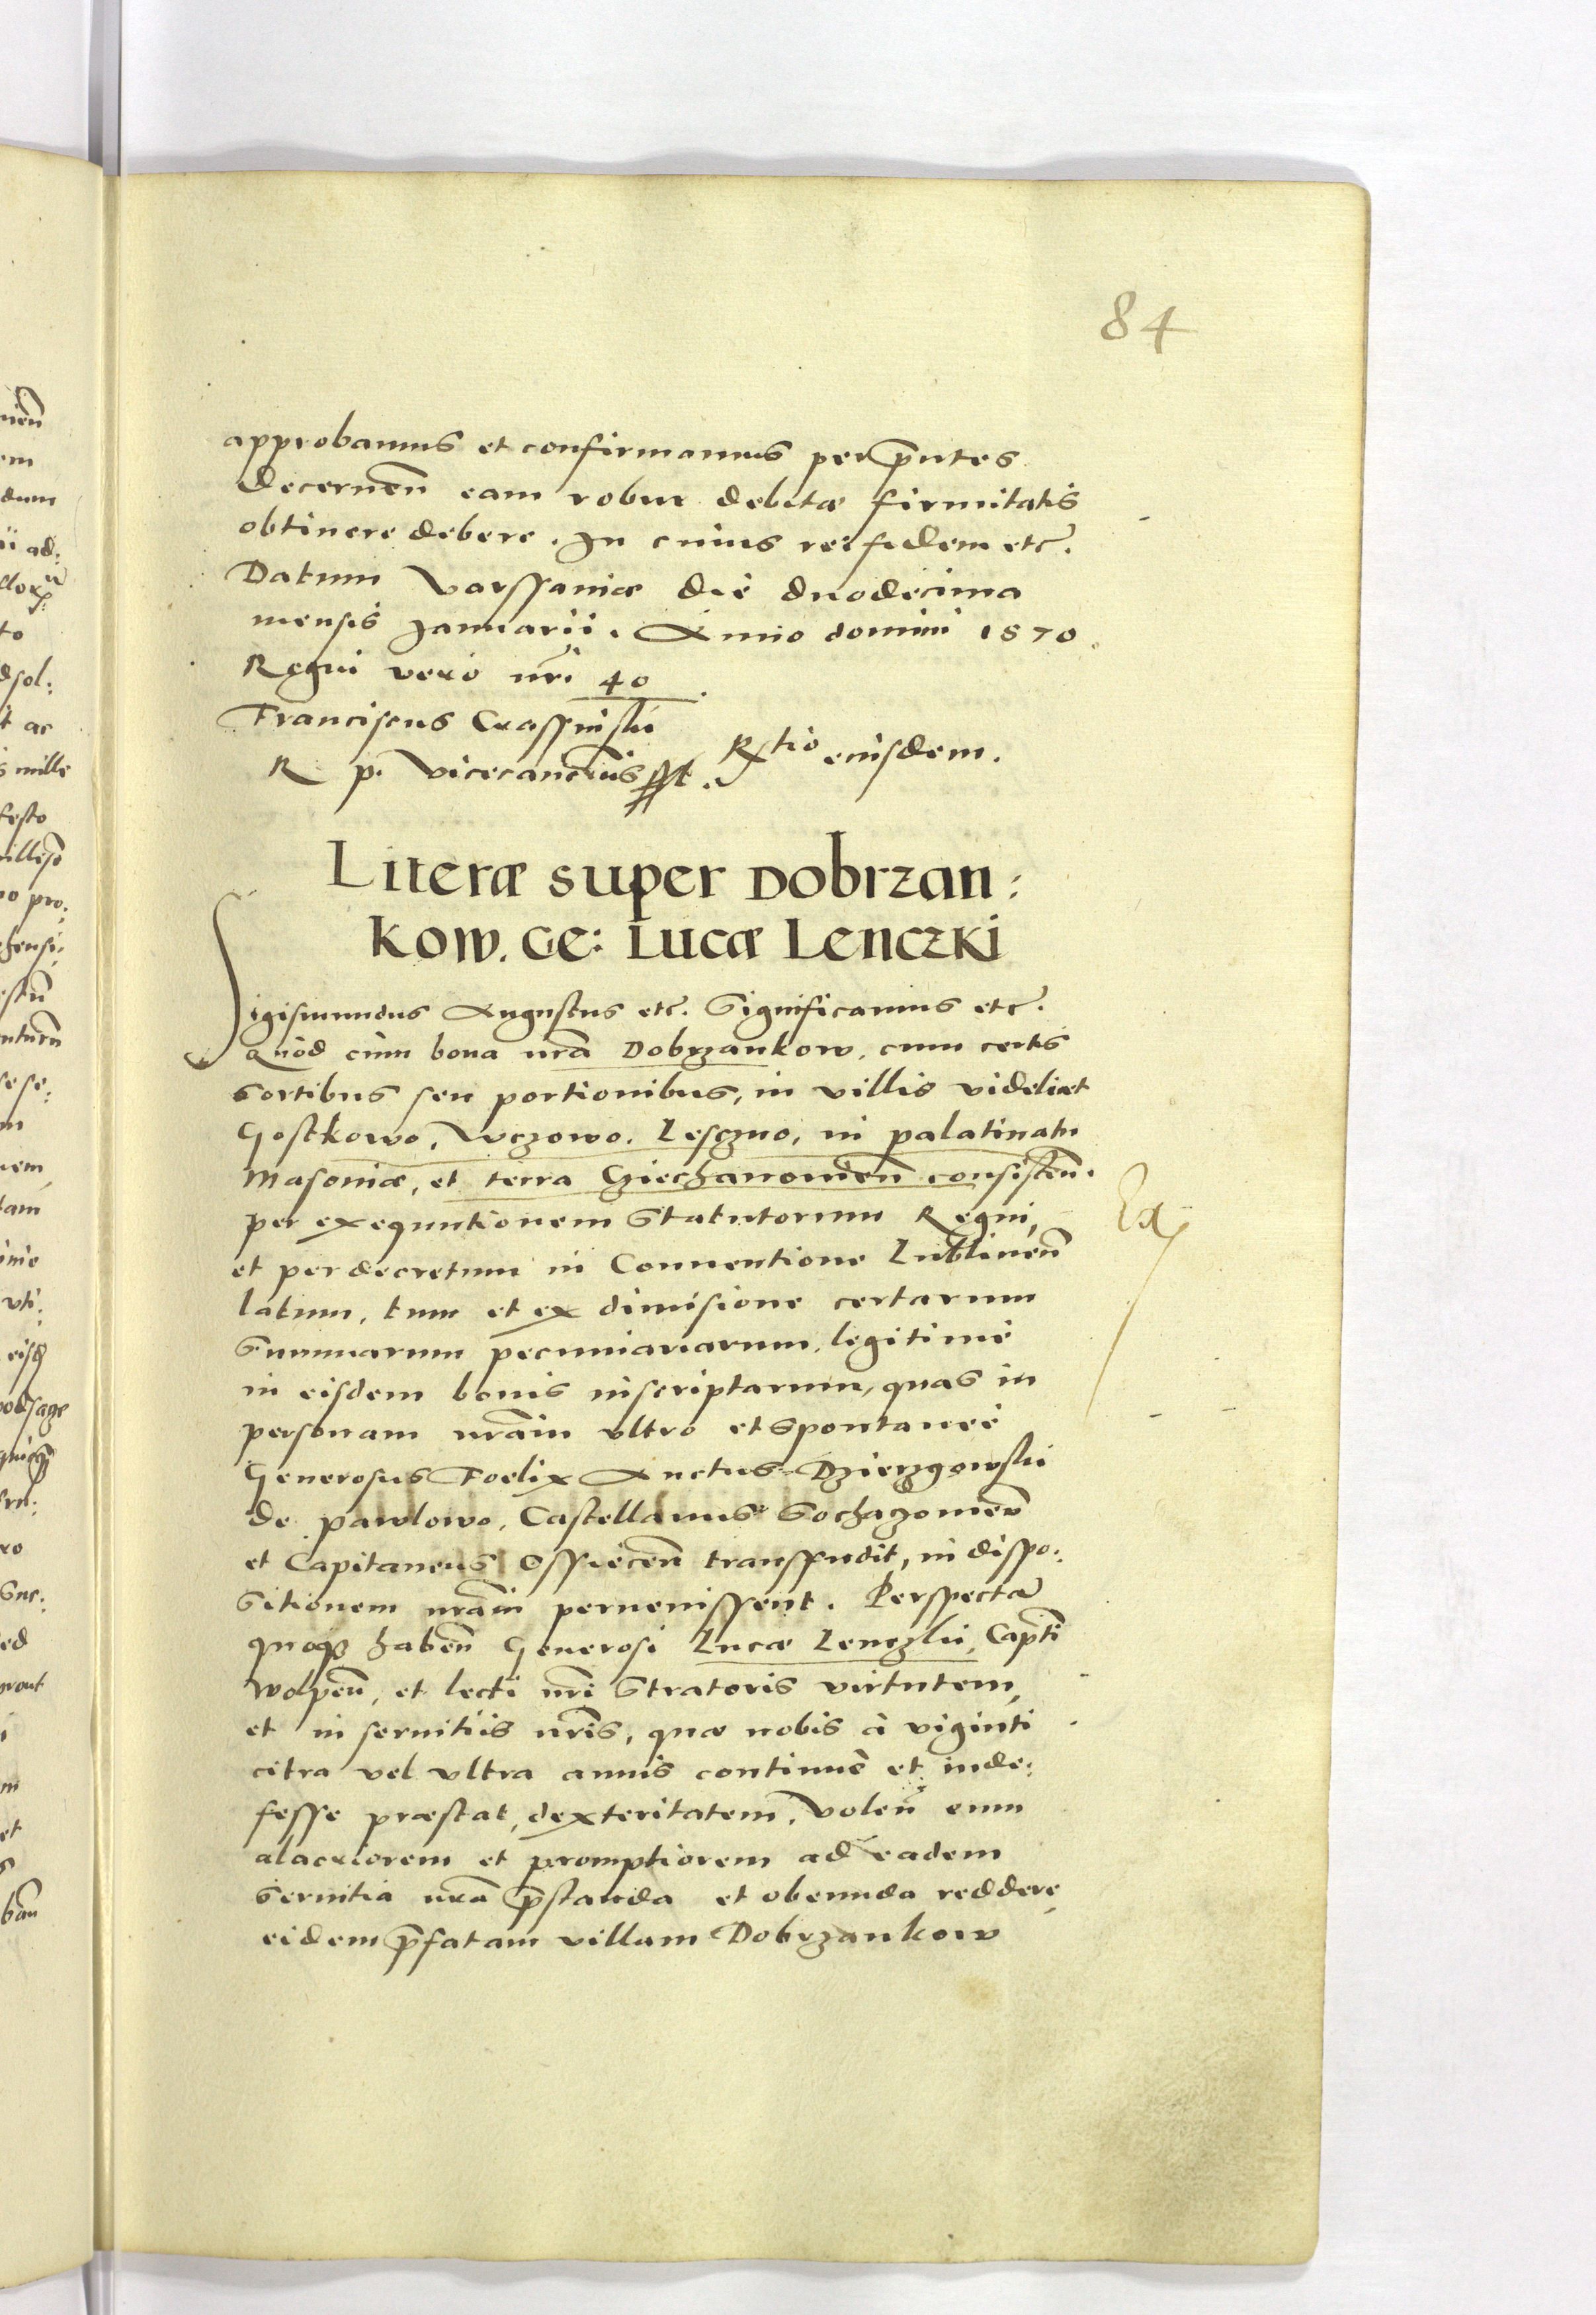 84
approbamus et confirmamus per p̄ntes
decerneñ eam robur debitæ firmitatis
obtinere debere. In cuius rei fidem etc.
Datum Varssaviæ die duodecima
mensis Januarii. Anno domini 1570.
Regni vero nr̄i 40
Franciscus Crassinski
R. p. Vicecancr̄ius sst. Rtio eiusdem.
Literæ super Dobrzan:
kow. Ge: Lucæ Lenczki
Sigismundus Augustus etc. Significamus etc.
Quod cum bona nr̄a Dobrzankow, cum certis
sortibus seu portionibus, in villis videlicet
Gostkowo, Wczowo, Lesczno, in palatinatu
Masoviæ, et terra Cziechanovieñ consisteñ.
per exequutionem Statutorum Regni,
Ex
et per decretum in Conventione Lublineñ
latum, tum et ex dimisione certarum
Summarum pecuniariarum, legitimè
in eisdem bonis inscriptarum, quas in
personam nr̄am ultro et spontaneè
Generosus Foelix Auctus Dzierzgowski
de pawlowo, Castellanus Sochaczovieñ
et Capitaneus Ossieceñ transfudit, in dispo:
sitionem nr̄am pervenissent. Perspectā
quoq habeñ Generosi Lucæ Lenczki, Capti
Wolpeñ, et lecti nr̄i Stratoris virtutem,
et in servitiis nr̄is, quæ nobis à viginti
citra vel ultra annis continuè et inde:
fesse præstat, dexteritatem. Voleñ eum
alacriorem et promptiorem ad eadem
servitia nr̄a p̄standa et obeunda reddere,
eidem p̄fatam villam Dobrzankow